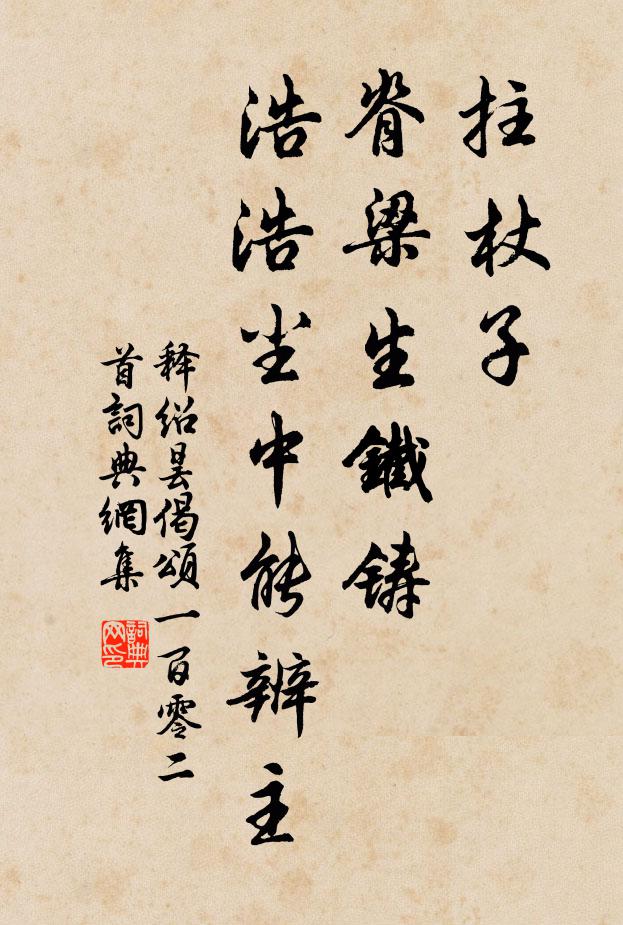 拄杖子
脊梁生鐵鑄
浩浩尘中能辨主
释绍曇偈頌一百零二
首詞典網集
詞典
网印